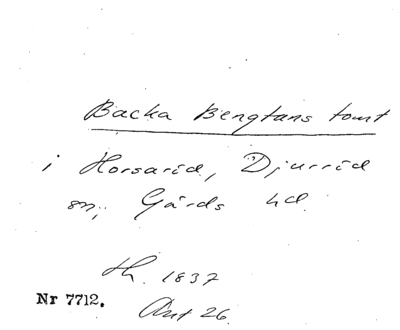 Backa Bengtans tomt
i Horsaröd, Djurröd
sn, Gärds hd.
th. 1837
Nr 7712.
Ant 26